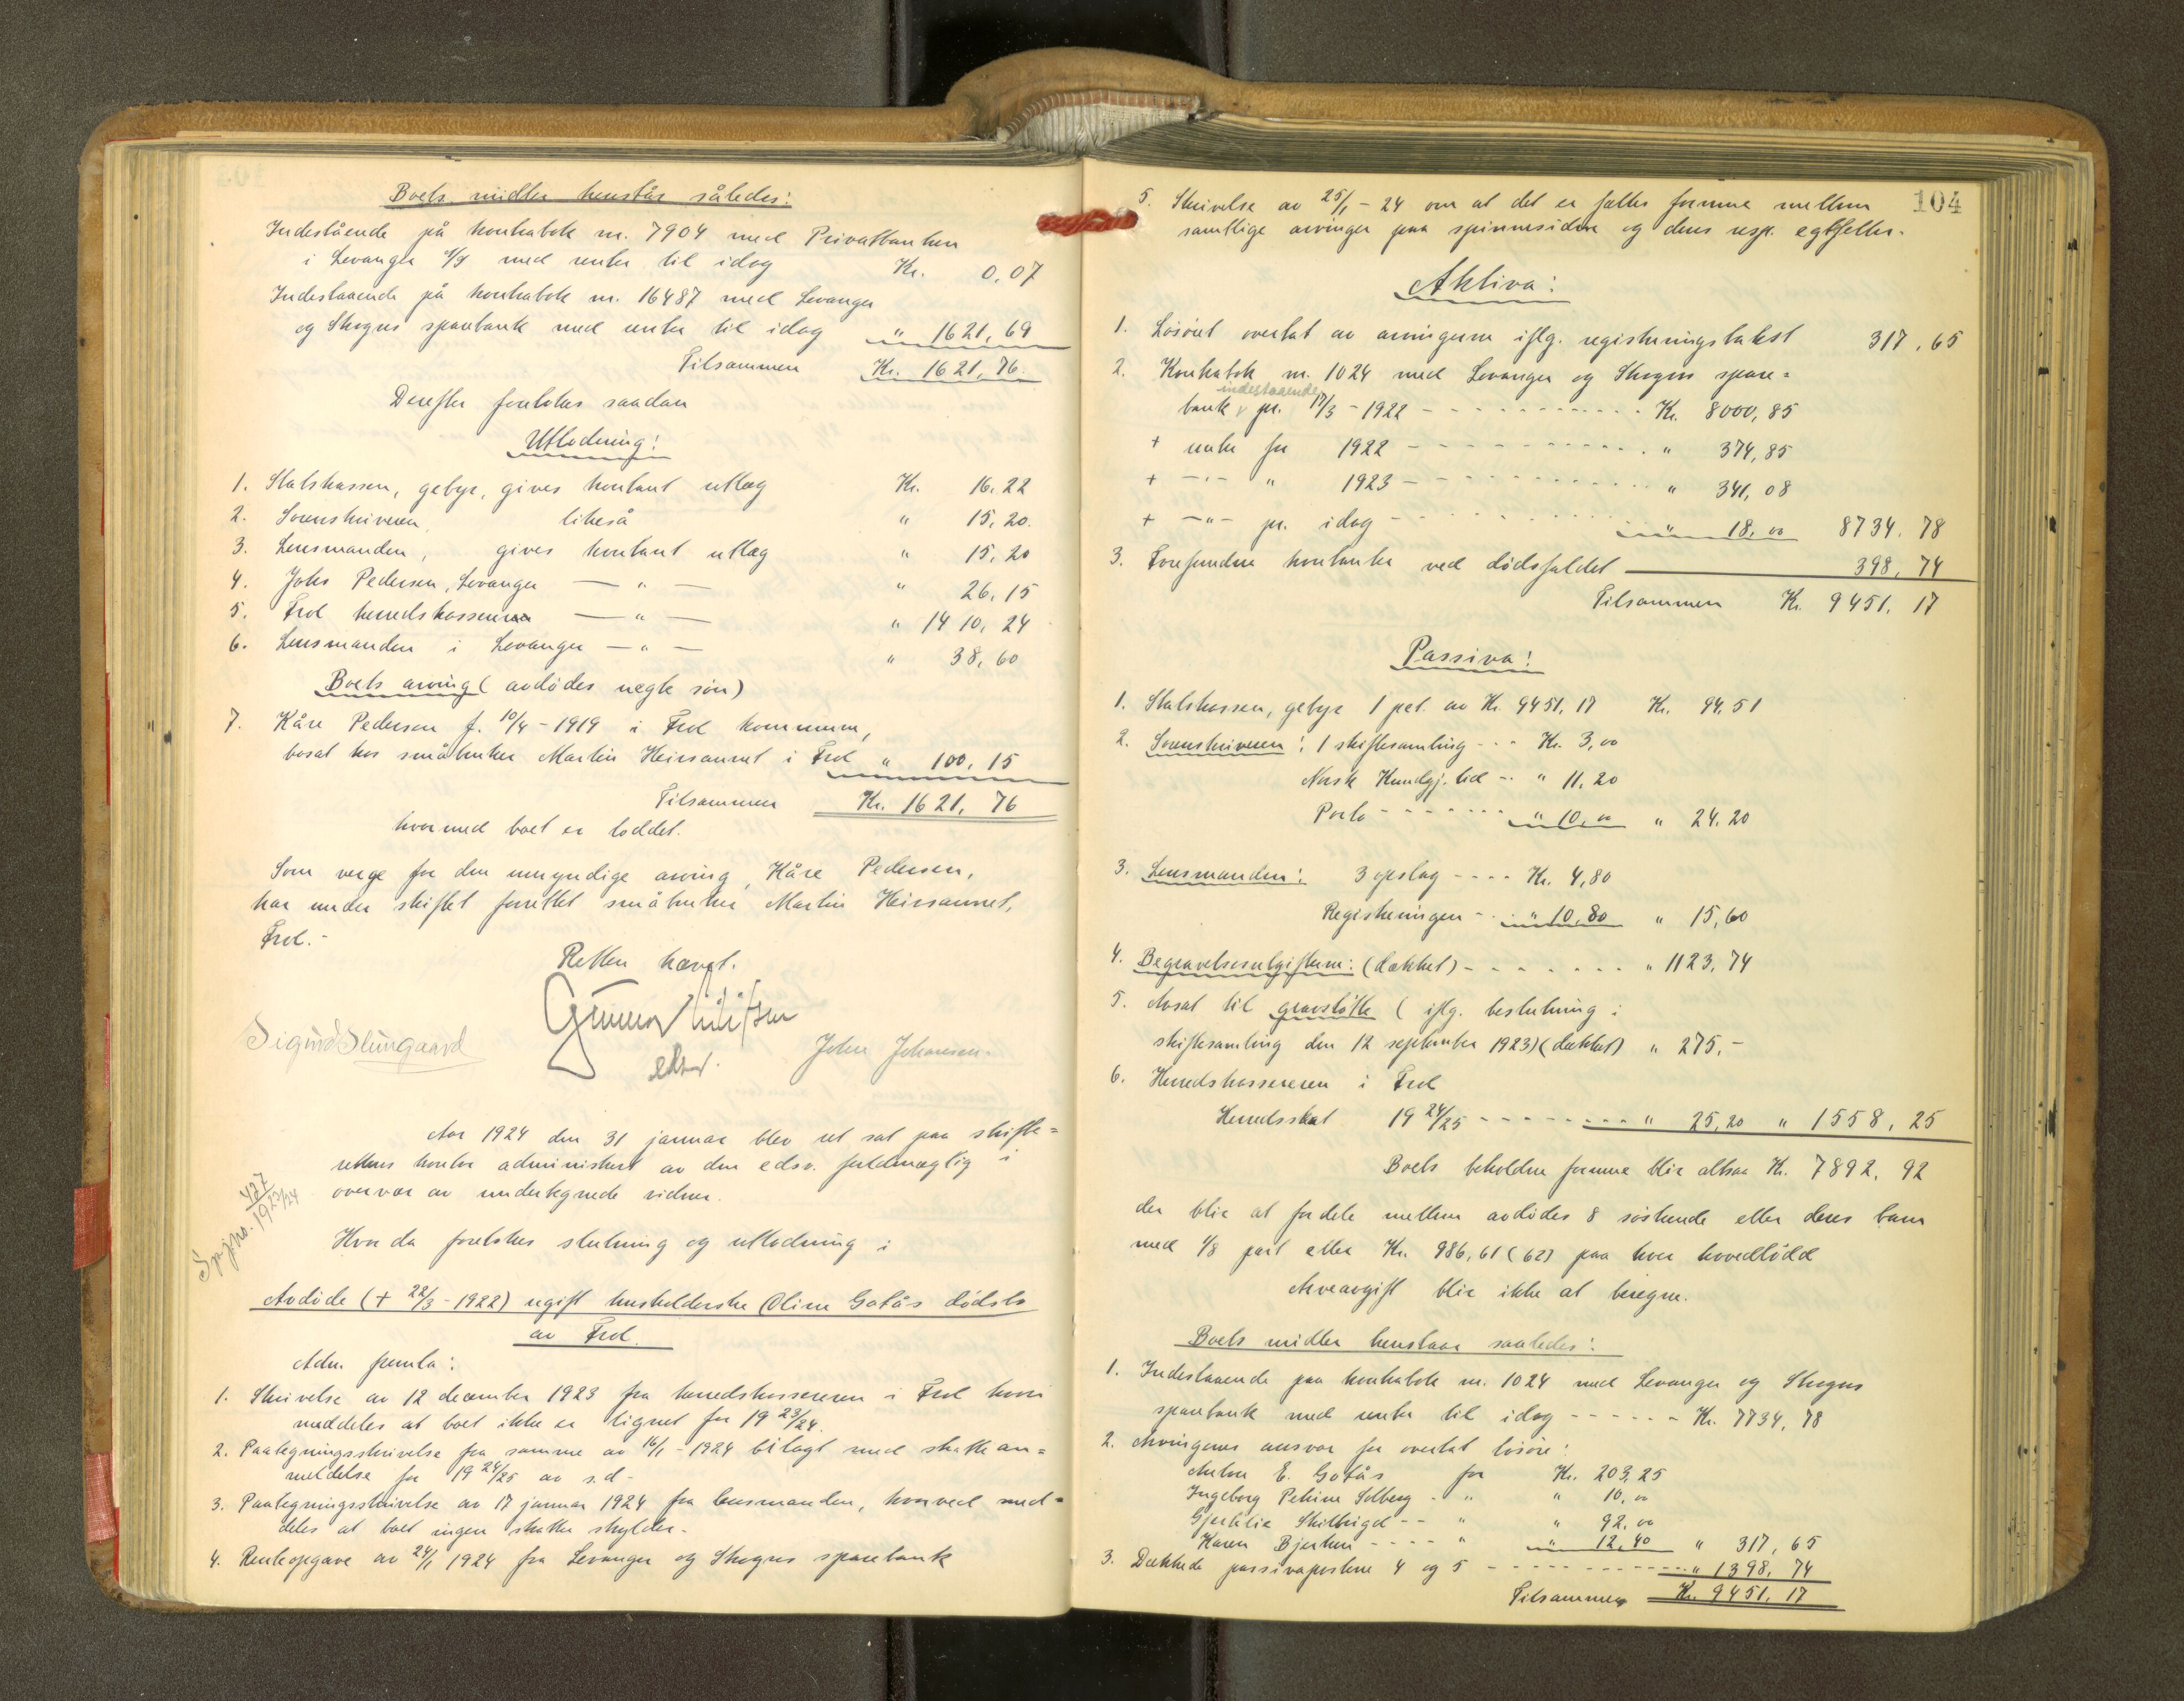 Boets midler henstår således:
Indestående på kontrabok nr. 7904 med Privatbanken
i Levanger A/S med renter til idag Kr. 0,07
Indestaaende på kontrabok nr. 16487 med Levanger
og Skogns sparebank med renter til idag " 1621,69
Tilsammen Kr. 1621,76.
Derefter foretokes saadan
Utlodning:
1. Statskassen, gebyr, gives kontant utlæg Kr. 16.22
2. Sorenskriveren, likeså " 15,20.
3. Lensmanden, gives kontant utlæg " 15,20
4. Johs Pedersen, Levanger — " — " 26,15
5. Frol herredskasserer — " — " 1410,24
6. Lensmanden i Levanger — " — " 38,60
Boets arving (avdødes uegte søn)
7. Kåre Pedersen f. 10/4 - 1919 i Frol kommune,
bosat hos småbruker Martin Heirsaunet i Frol " 100,15
Tilsammen Kr. 1621,76
hvormed boet er loddet.
Som verge for den umyndige arving, Kåre Pedersen,
har under skiftet forrettet småbruker Martin Heirsaunet,
Frol.-
Retten hævet.
Sigurd Slungaard
John Johansen.
Aar 1924 den 31 januar blev ret sat paa skifte=
rettens kontor administrert av den edsv. fuldmægtig i
overvær av undertegnede vidner.
Sp.j.no. 427 1923/24
Hvor da foretokes slutning og utlodning i
Avdøde (+ 22/3 - 1922) ugift husholderske Oline Gotås dødsbo
av Frol.
Adm. fremla:
1. Skrivelse av 12 december 1923 fra herredskassereren i Frol hvori
meddeles at boet ikke er lignet for 1923/24.
2. Paategningsskrivelse fra samme av 16/1 - 1924 bilagt med skattean=
meldelse for 1924/25 av s.d -
3. Paategningsskrivelse av 17 januar 1924 fra lensmanden, hvorved med=
deles at boet ingen skatter skylder.
4. Renteopgave av 24/1 1924 fra Levanger og Skogns sparebank
104
5. Skrivelse av 25/1 - 24 om at det er fælles formue mellem
samtlige arvinger paa spinnesiden og deres resp. egtefeller.
Aktiva:
1. Løsøret overtat av arvingerne iflg. registreringstakst 317,65
2. Kontrabok nr. 1024 med Levanger og Skogns spare=
indestaaende
bank pr. 17/3 - 1922 - - - - Kr. 8000,85
+ renter for 1922 - - - - " 374,85
+ -"- " 1923 - - - - " 341,08
+ -"- pr. idag - - - - " 18,00 8734.78
3. Forefundne kontanter ved dødsfaldet 398,74
Tilsammen Kr. 9451,17
Passiva:
1. Statskassen, gebyr 1 pct. av Kr. 9451,17 Kr. 94.51
2. Sorenskriveren: 1 skiftesamling - - - Kr. 3,00
Norsk Kundgj. tid - - " 11.20
Porto - - - - " 10,00 " 24.20
3. Lensmanden: 3 opslag - - - - Kr. 4,80
Registreringen - - " 10,80 " 15,60
4. Begravelsesutgifterne: (dækket) - - - - " 1123,74
5. Avsat til gravstøtte (iflg. beslutning i
skiftesamling den 12 september 1923) (dækket) " 275.-
6. Herredskassereren i Frol
Herredsskat 1924/25 - - - - " 25,20 " 1558,25
Boets beholdne formue blir altsaa Kr. 7892,92
der blir at fordele mellem avdødes 8 søskende eller deres barn
med 1/8 part eller Kr. 986,61 (62) paa hver hovedlodd
Arveavgift blir ikke at beregne.
Boets midler henstaar saaledes:
1. Indestaaende paa kontrabok nr. 1024 med Levanger og Skogns
sparebank med renter til idag - - - - - Kr. 7734,78
2. Arvingernes ansvar for overtat løsøre:
Anton E. Gotås for Kr. 203,25
Ingeborg Petrine Solberg - " " 10,00
Skillrigel - - " " 92,00
Karen Bjerken - - - - " " 12,40 " 317,65
3. Dækkede passivaposterne 4 og 5 - - - - " 1398,74
Tilsammen Kr. 9451,17